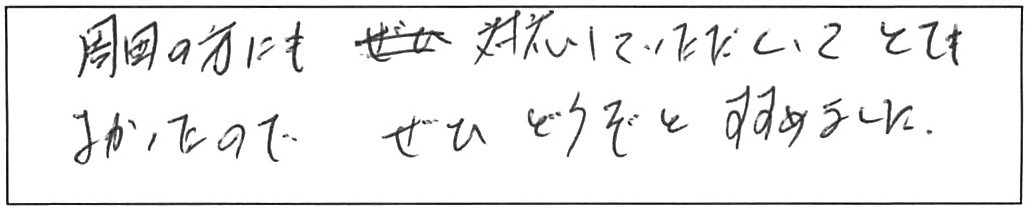 周囲の方にも 対応していただくいて とても
よかったので ぜひ どうぞと すすめました.